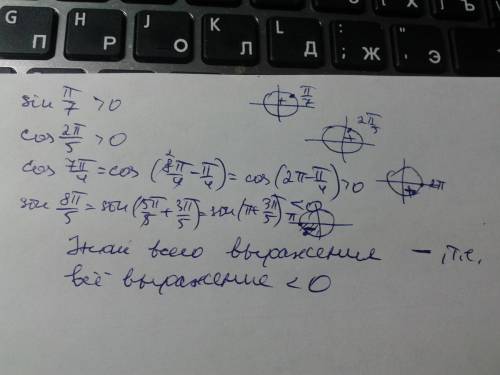 G H J K L : ;
П Р О Л Д Ж Э
sin π/7 > 0
π/7
cos 2π/5 > 0
2π/5
cos 7π/4 = cos (8π/4 - π/4) = cos (2π - π/4) > 0
2
2π
sin 8π/5 = sin (5π/5 + 3π/5) = sin (π + 3π/5) < 0
π
Знак всего выражения —, т.е.
всё выражение < 0